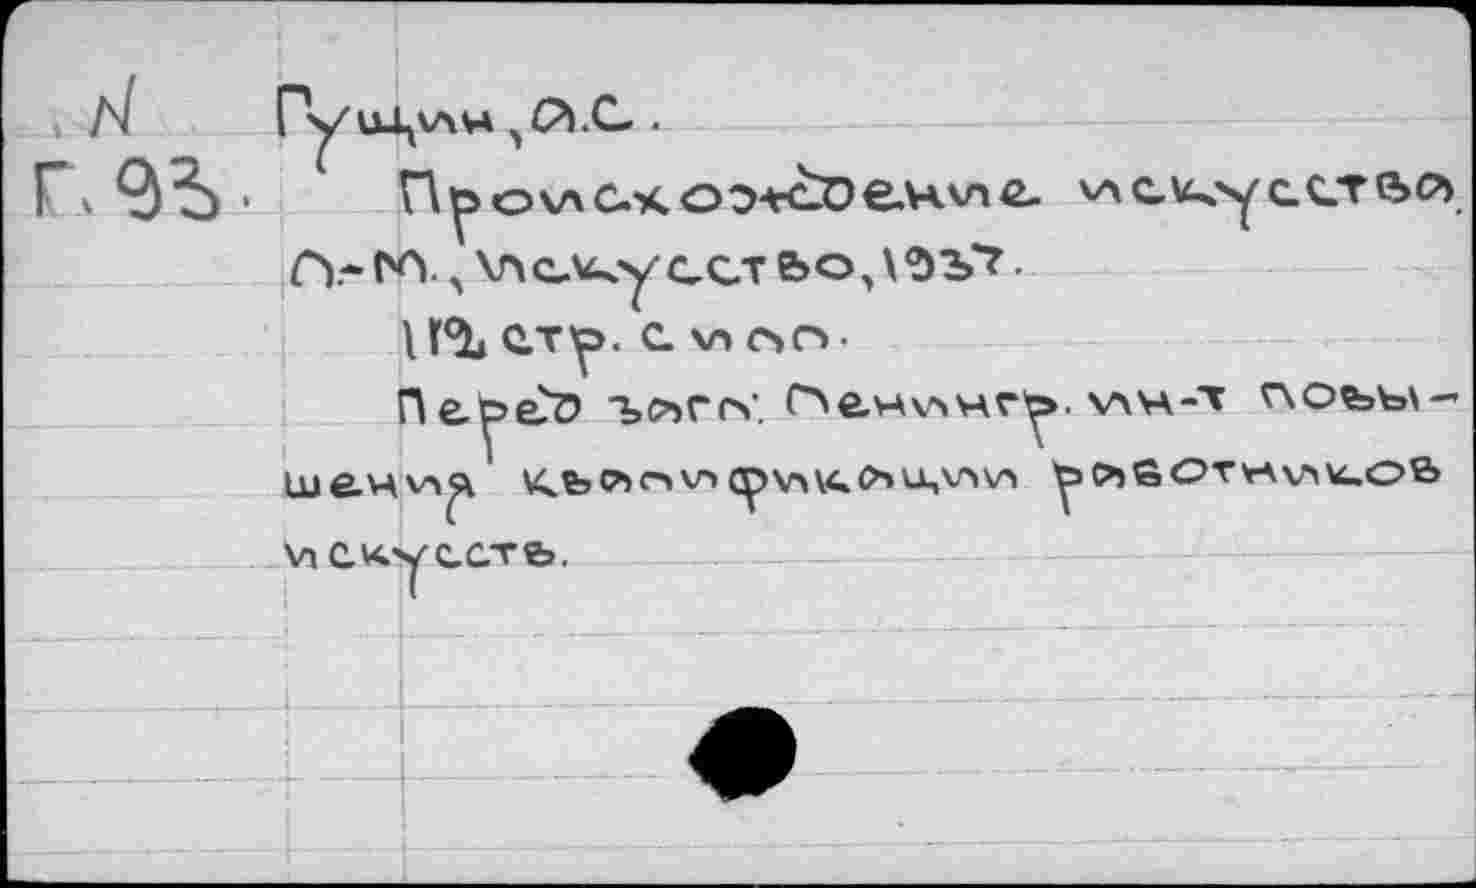 N Гущин, А.С..
Г.93. Происхождение искусства.
Л.-М., Искусство, 1937.
112 стр. с илл.
Перед загл: Ленингр. ин-т повы-
шения квалификации работников
искусств.